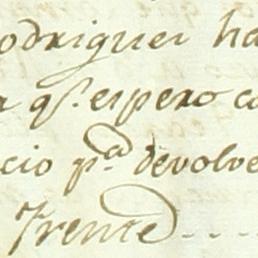 odriguez ha
r qe. espero co
cio pa. devolve
Frente